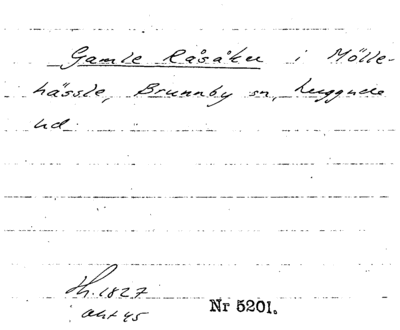 Gamle Råsåker i Mölle-
hässle, Brunnby sn, Luggude
hd
Sk. 1827
akt 45
Nr 5201.